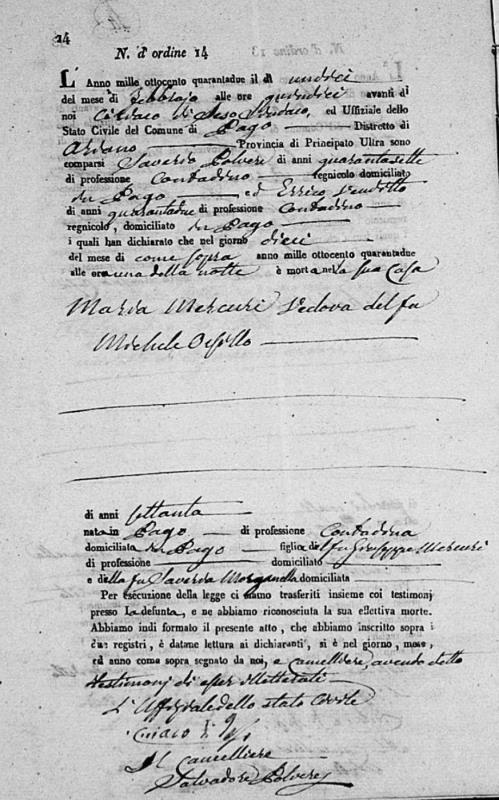 14
N. d'ordine 14
L'Anno mille ottocento quarantadue il dì undeci
del mese di Febbrajo alle ore quindici avanti di
noi Ciriaco di Sindaco, ed Uffiziale dello
Stato Civile del Comune di Pago Distretto di
Ariano Provincia di Principato Ultra sono
comparsi Saverio Polvere di anni quarantasette
di professione Contadino regnicolo domiciliato
in Pago ed Errico
di anni quarantadue di professione Contadino
regnicolo, domiciliato in Pago
i quali han dichiarato che nel giorno dieci
del mese di come sopra anno mille ottocento quarantadue
alle ore una della notte è morta nella sua Casa
Maria Mercuri Vedova del fu
Michele
di anni settanta
nata in Pago di professione Contadina
domiciliata in Pago figlia di fu Giuseppe Mercuri
di professione domiciliato
e della fu Saveria domiciliata
Per esecuzione della legge ci siamo trasferiti insieme coi testimonj
presso la defunta, e ne abbiamo riconosciuta la sua effettiva morte.
Abbiamo indi formato il presente atto, che abbiamo inscritto sopra i
due registri, è datane lettura ai dichiaranti, si è nel giorno, mese,
ed anno come sopra segnato da noi, e Cancelliere, avendo detto
testimonj di esser illetterati
L'Uffiziale dello stato Civile
Ciriaco
Il Cancelliere
Salvadore Polvere